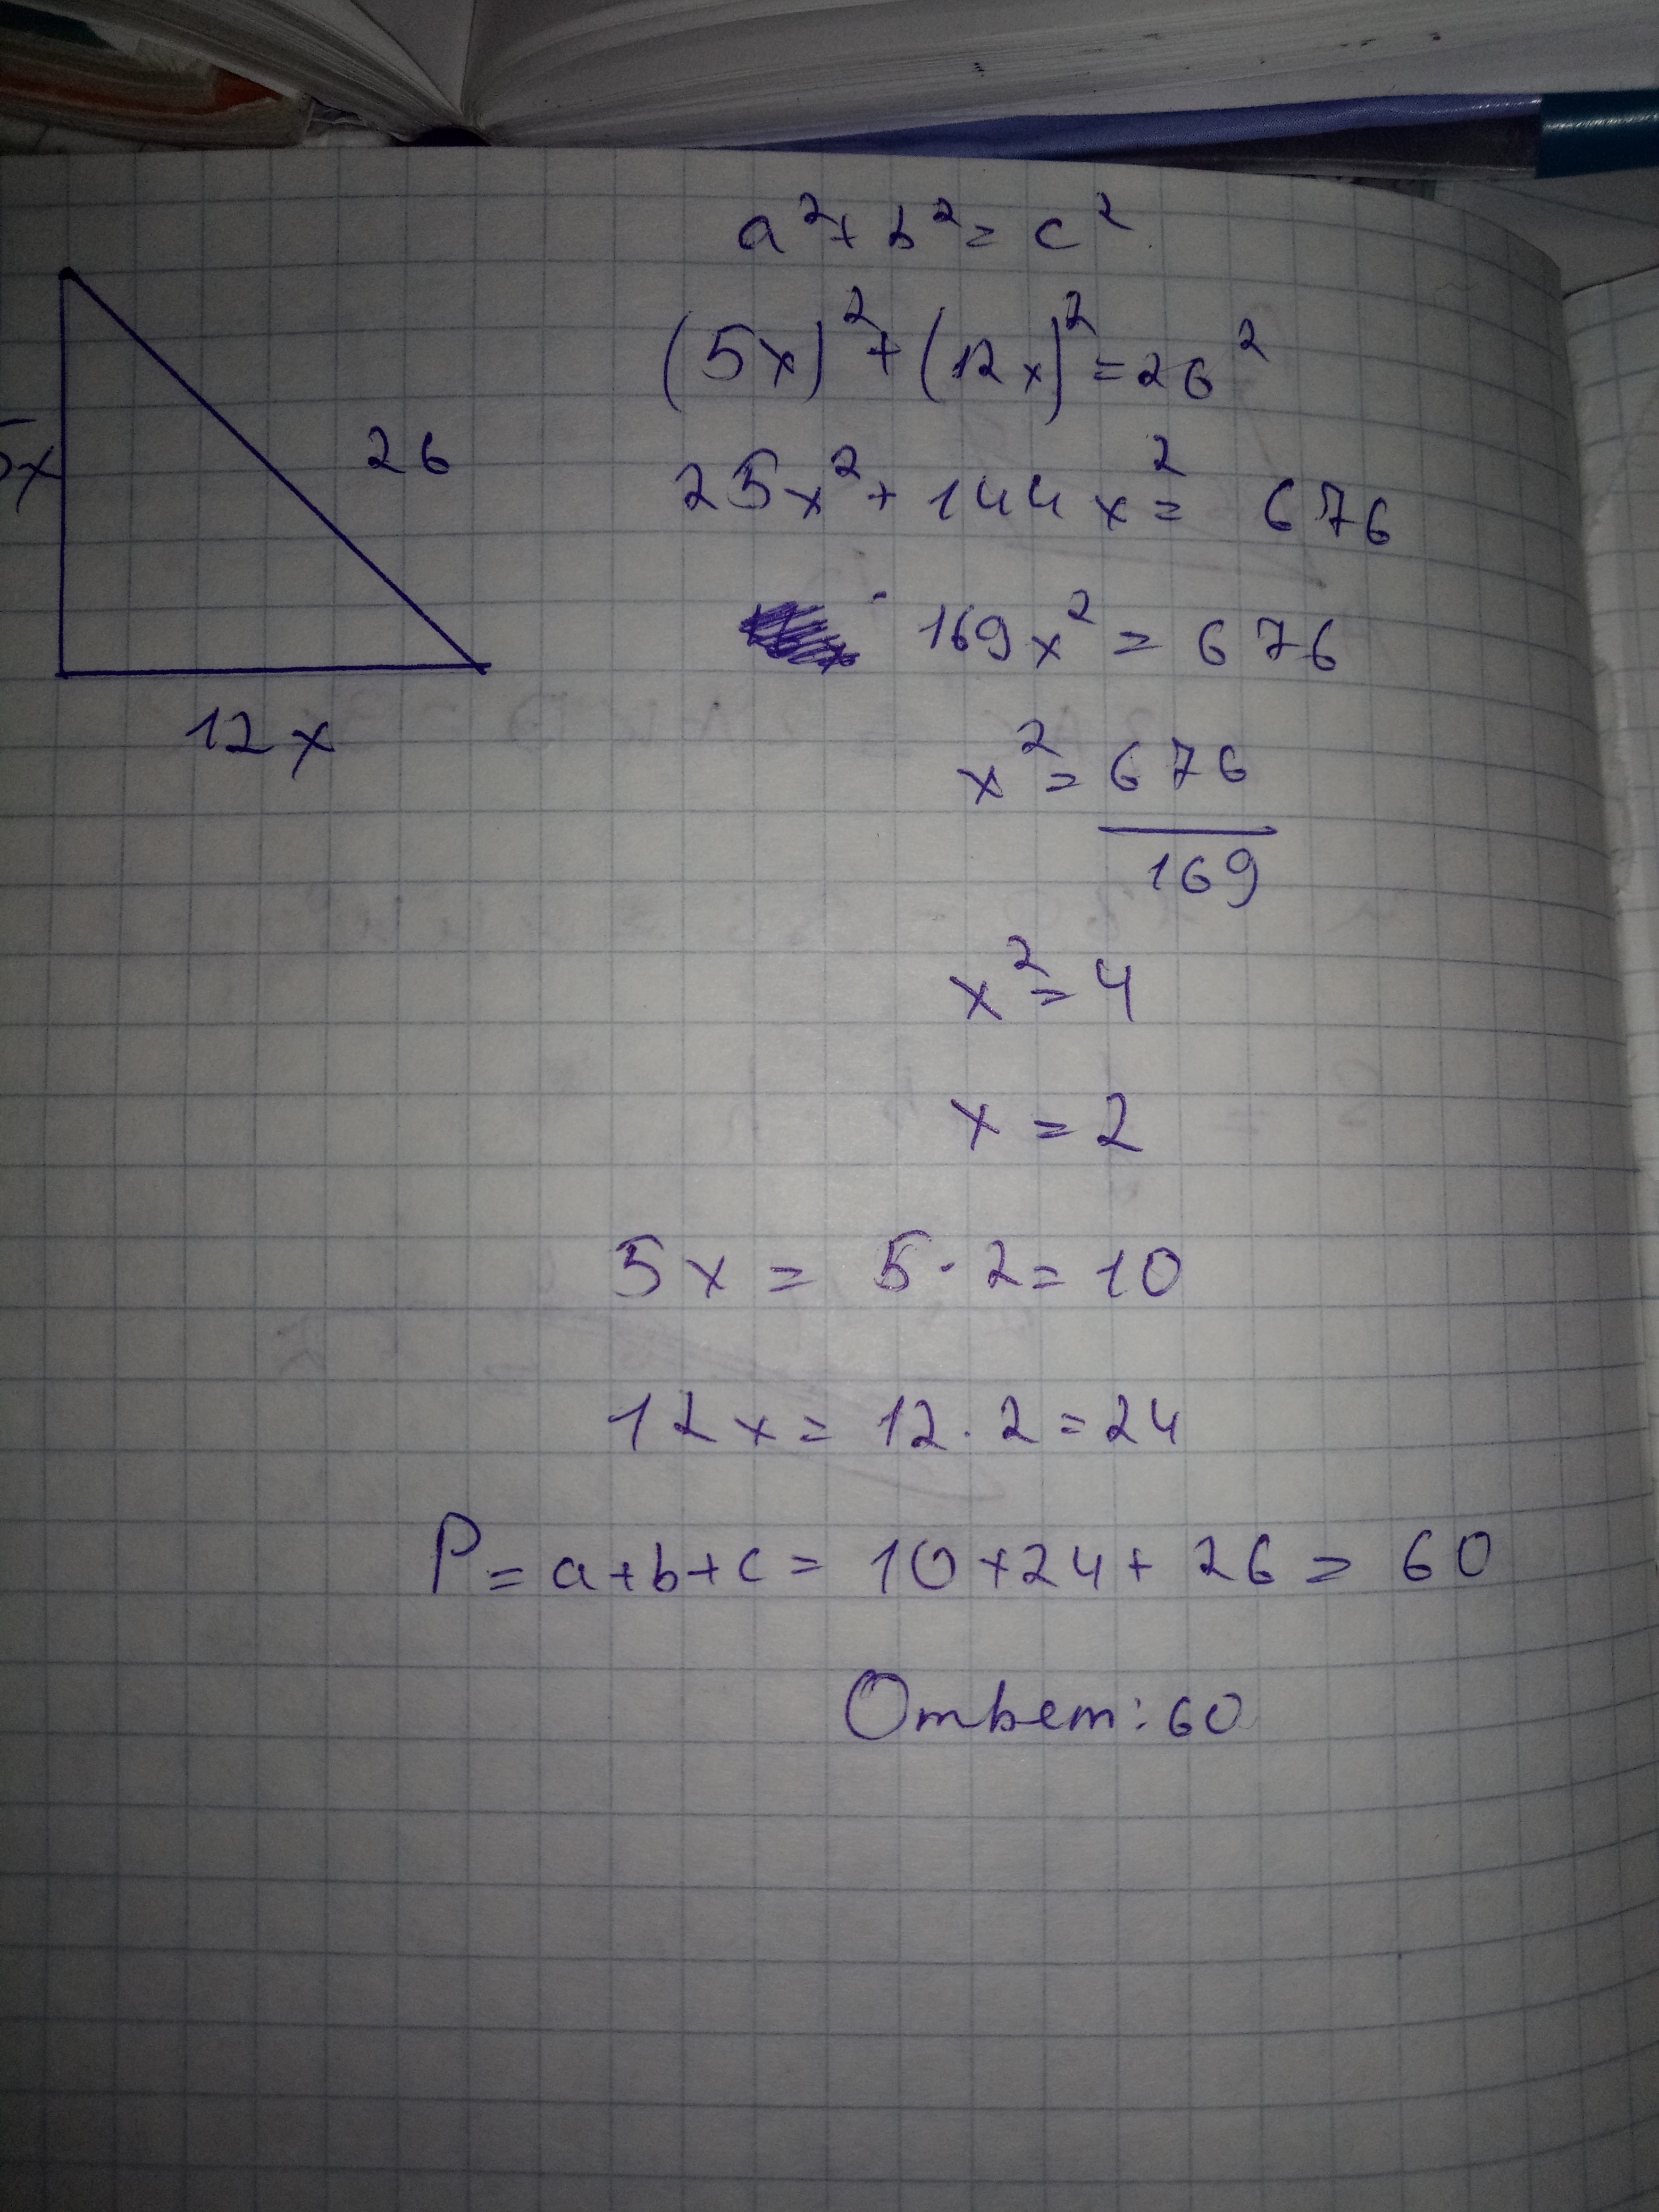 a² + b² = c²
(5x)² + (12x)² = 26²
5x
26
25x² + 144x² = 676
169x² = 676
12x
x² = 676
169
x² = 4
x = 2
5x = 5 · 2 = 10
12x = 12 · 2 = 24
P = a + b + c = 10 + 24 + 26 = 60
Ответ: 60